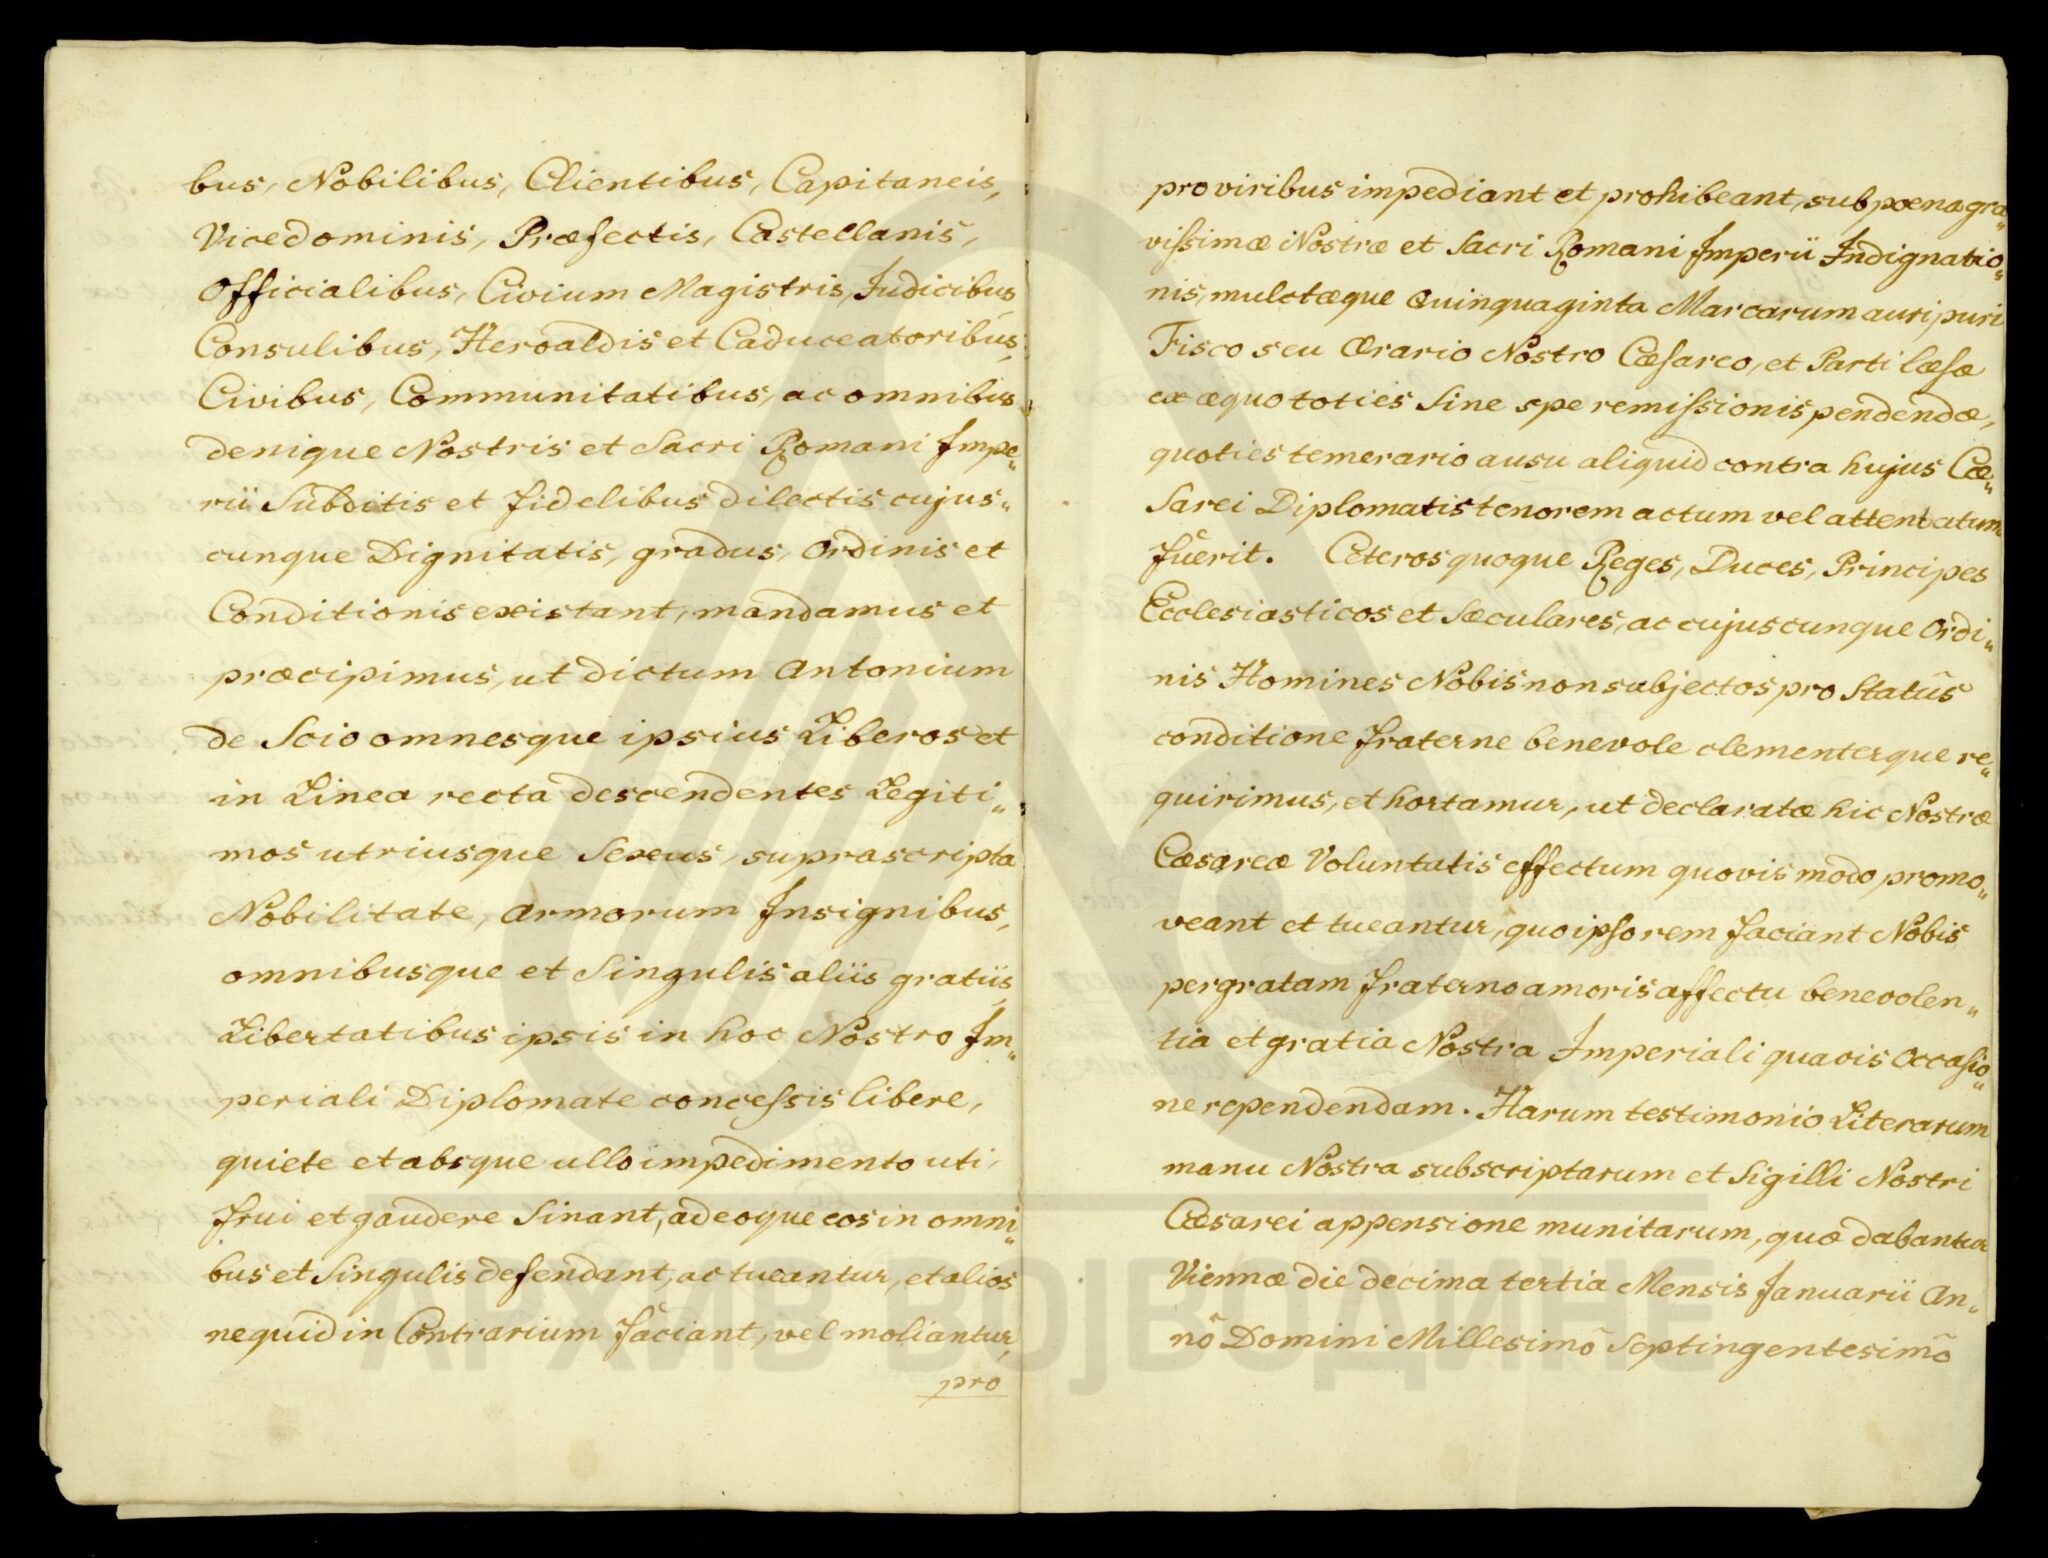 bus, Nobilibus, Clientibus, Capitaneis,
Vicedominis, Præfectis, Castellanis,
Officialibus, Civium Magistris, Judicibus
Consulibus, Heroaldis et Caduceatoribus,
Civibus, Communitatibus, ac omnibus
denique Nostris et Sacri Romani Impe„
rii Subditis et fidelibus dilectis cujus„
cunque Dignitatis, gradus, Ordinis et
Conditionis existant, mandamus et
præcipimus, ut dictum Antonium
de Scio omnesque ipsius Liberos et
in Linea recta descendentes Legiti„
mos utriusque Sexus, suprascripta
Nobilitate, Armorum Insignibus,
omnibusque et Singulis aliis gratiis,
Libertatibus ipsis in hoc Nostro Im„
periali Diplomate concessis libere,
quiete et absque ullo impedimento uti,
frui et gaudere Sinant, adeoque eos in omni„
bus et Singulis defendant, ac tueantur, et alios
ne quid in Contrarium faciant, vel moliantur,
pro
pro viribus impediant et prohibeant, sub poena gra„
vissimæ Nostræ et Sacri Romani Imperii Indignatio„
nis, mulctæque Quinquaginta Marcarum auri puri
Fisco seu Ærario Nostro Cæsareo, et Parti læsæ
ex æquo toties Sine spe remissionis pendendæ,
quoties temerario ausu aliquid contra hujus Cæ„
Sarei Diplomatis tenorem actum vel attentatum
fuerit. Ceteros quoque Reges, Duces, Principes
Ecclesiasticos et Sæculares, ac cujuscunque Ordi„
nis Homines Nobis non subjectos pro Statûs
conditione fraterne benevole clementerque re„
quirimus, et hortamur, ut declaratæ hic Nostræ
Cæsareæ Voluntatis effectum quovis modo promo„
veant et tueantur, quo ipso rem faciant Nobis
pergratam fraterno amoris affectu benevolen„
tia et gratia Nostra Imperiali quavis Occasio„
ne rependendam. Harum testimonio Literarum
manu Nostra subscriptarum et Sigilli Nostri
Cæsarei appensione munitarum, quæ dabantur
Viennæ die decima tertia Mensis Januarii An„
nô Domini Millesimô Septingentesimô
АРХИВ ВОЈВОДИНЕ